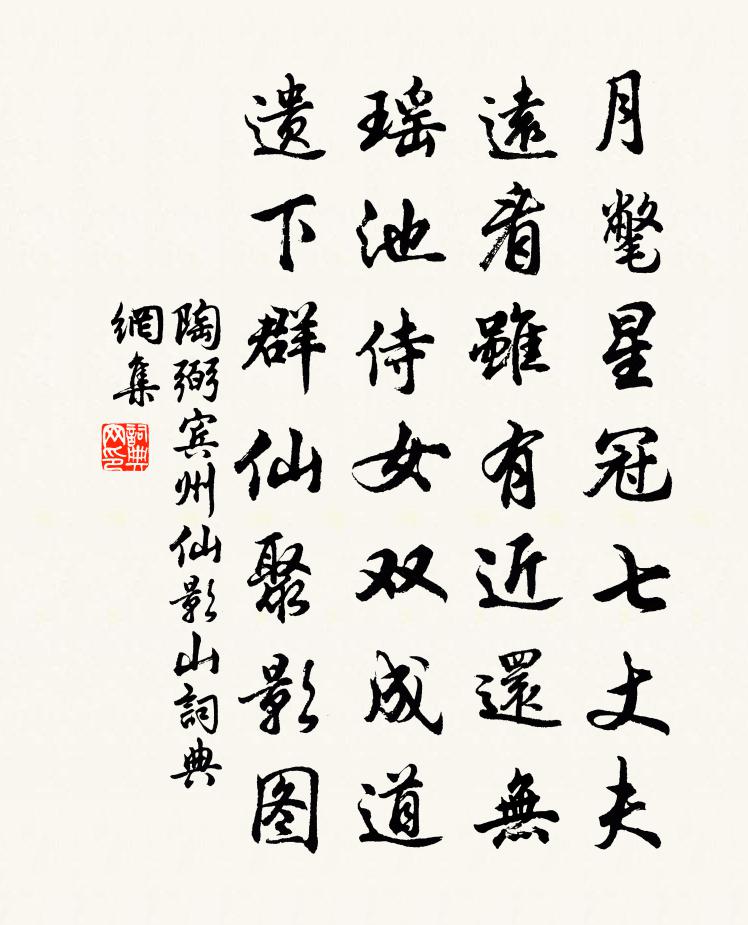 月氅星冠七丈夫
遠看雖有近還無
瑶池侍女双成道
遗下群仙聚影图
陶弼宾州仙影山詞典
網集
詞典
网印